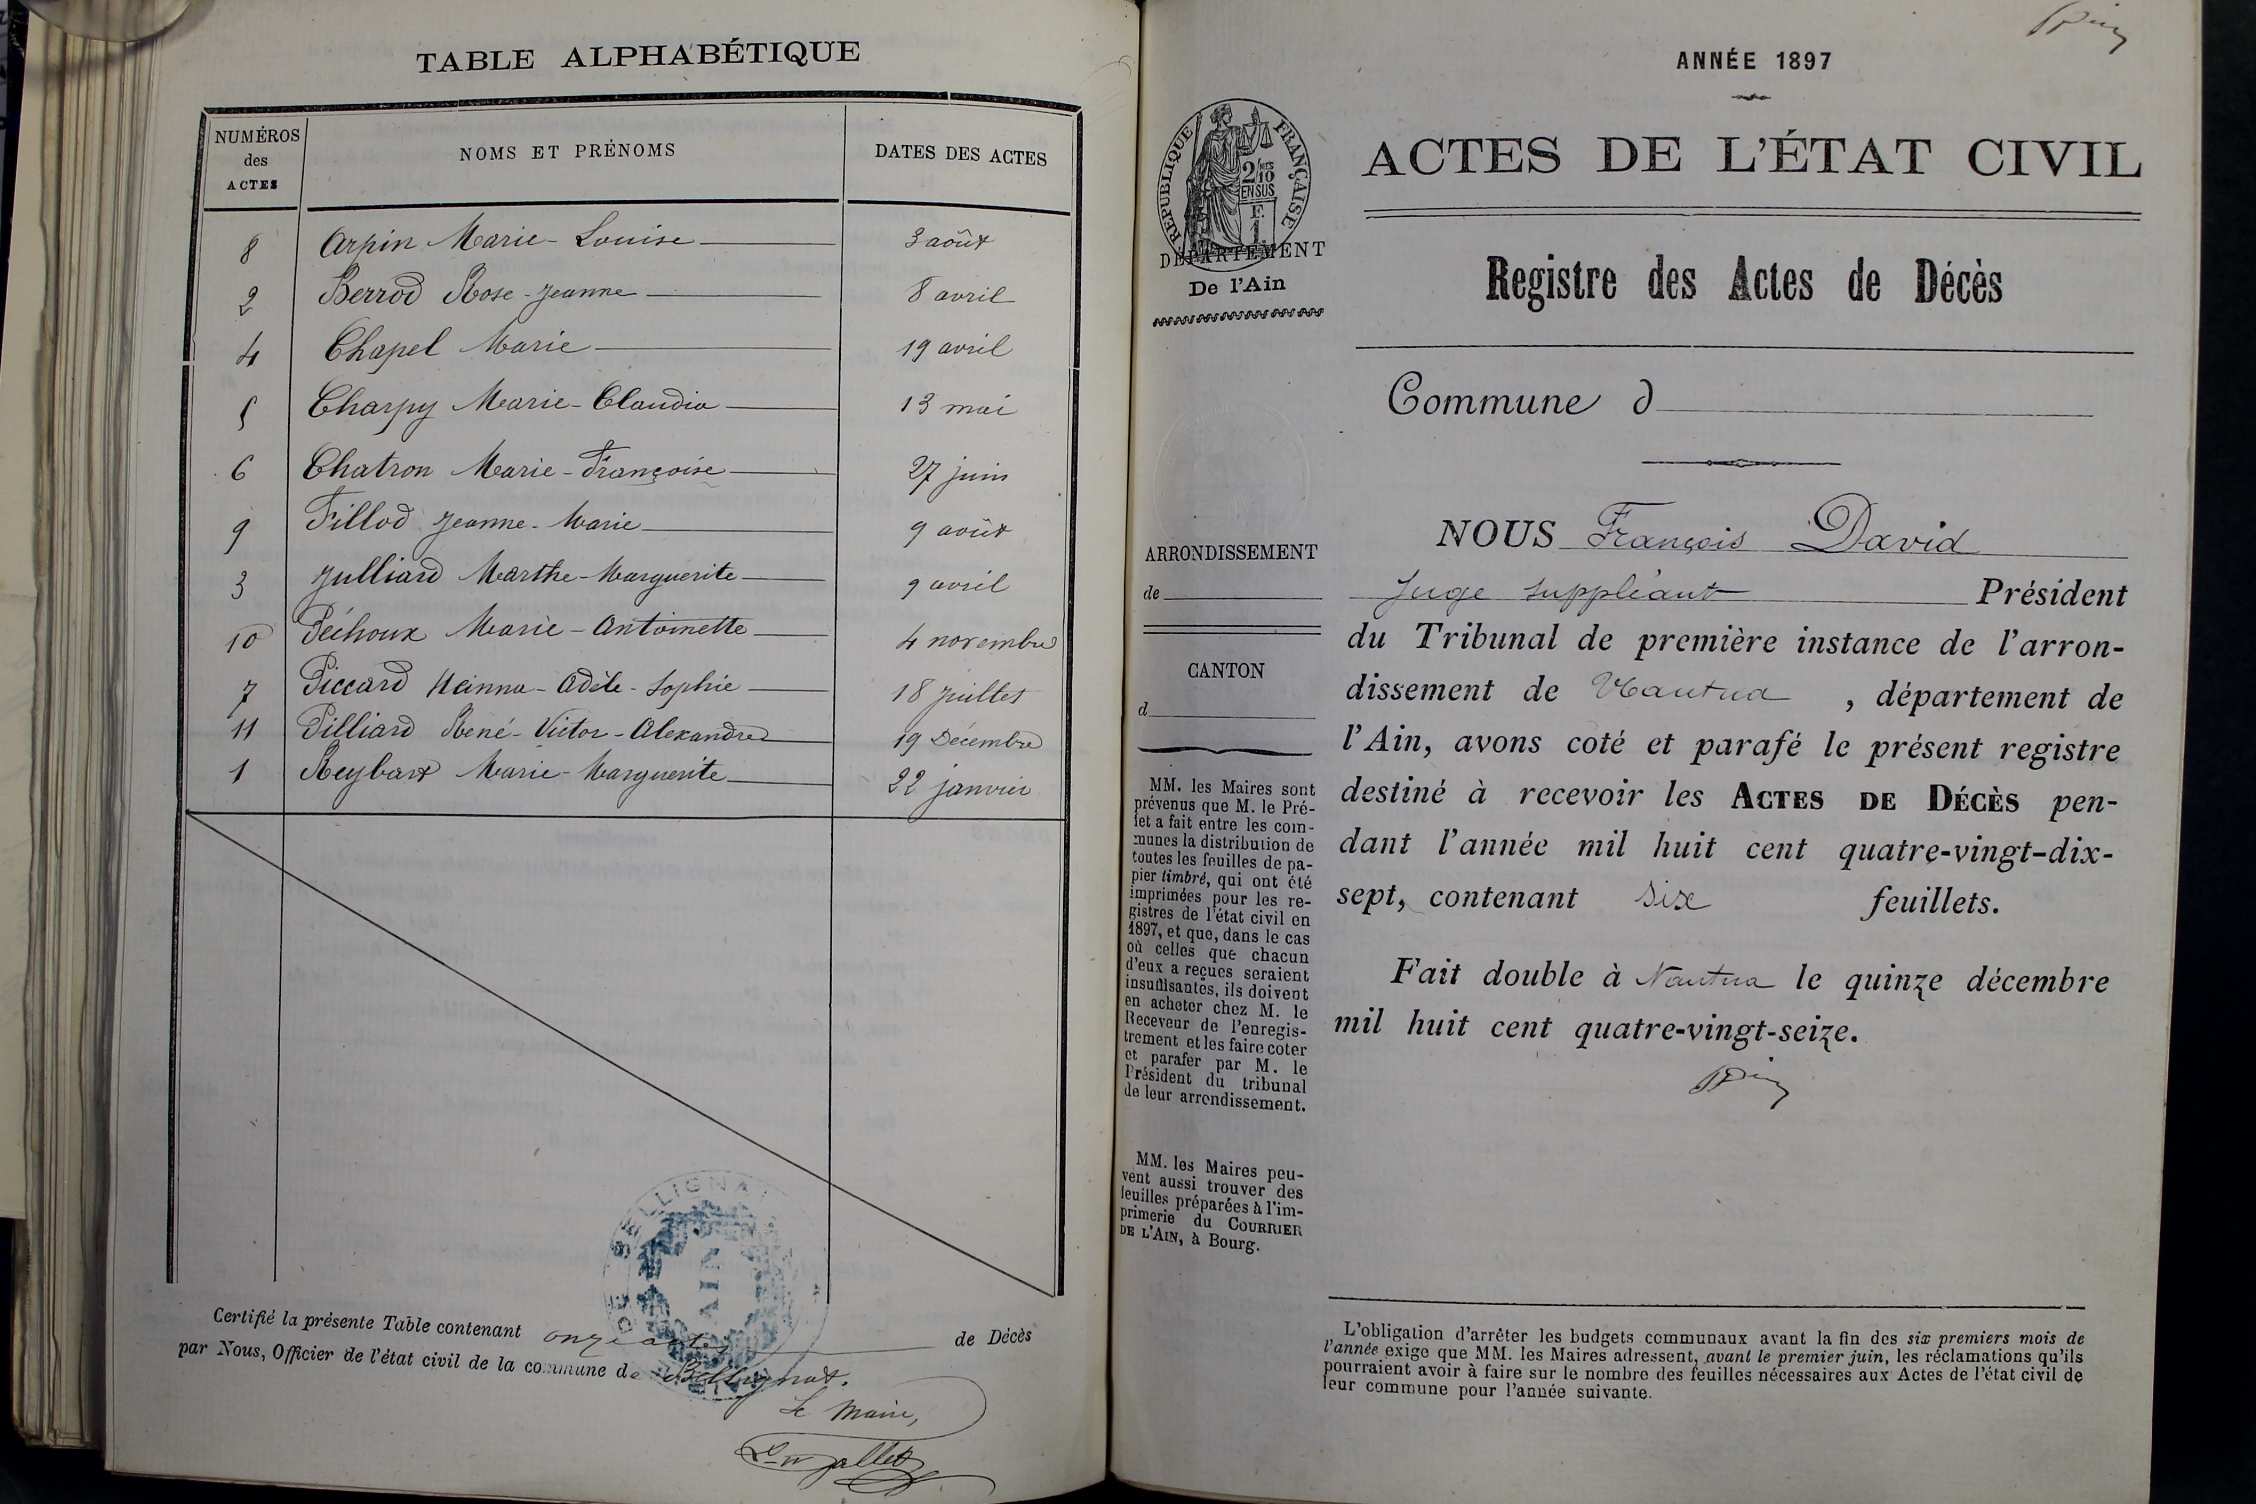 TABLE ALPHABÉTIQUE
NUMÉROS des ACTES NOMS ET PRÉNOMS DATES DES ACTES
8 Arpin Marie-Louise 3 août
2 Berrod Rose-Jeanne 8 avril
4 Chapel Marie 19 avril
5 Charpy Marie-Claudia 13 mai
6 Chatron Marie-Françoise 27 juin
9 Fillod Jeanne-Marie 9 août
3 Julliard Marthe-Marguerite 9 avril
10 Péchoux Marie-Antoinette 4 novembre
7 Piccard Adèle-Sophie 18 juillet
11 Pilliard René-Victor-Alexandre 19 Décembre
1 Reybart Marie-Marguerite 22 janvier
DE BELLIGNAT
AIN
Certifié la présente Table contenant onze actes de Décès
par Nous, Officier de l'état civil de la commune de Bellignat.
Le Maire,
ANNÉE 1897
RÉPUBLIQUE FRANÇAISE
2/10 EN SUS
F. 1
DÉPARTEMENT
De l'Ain
ARRONDISSEMENT
de
CANTON
d
MM. les Maires sont
prévenus que M. le Pré-
fet a fait entre les com-
munes la distribution de
toutes les feuilles de pa-
pier timbré, qui ont été
imprimées pour les re-
gistres de l'état civil en
1897, et que, dans le cas
où celles que chacun
d'eux a reçues seraient
insuffisantes, ils doivent
en acheter chez M. le
Receveur de l'enregis-
trement et les faire coter
et parafer par M. le
Président du tribunal
de leur arrondissement.
MM. les Maires peu-
vent aussi trouver des
feuilles préparées à l'im-
primerie du COURRIER
DE L'AIN, à Bourg.
ACTES DE L'ÉTAT CIVIL
Registre des Actes de Décès
Commune d
NOUS François David
Juge suppléant Président
du Tribunal de première instance de l'arron-
dissement de Nantua, département de
l'Ain, avons coté et parafé le présent registre
destiné à recevoir les ACTES DE DÉCÈS pen-
dant l'année mil huit cent quatre-vingt-dix-
sept, contenant six feuillets.
Fait double à Nantua le quinze décembre
mil huit cent quatre-vingt-seize.
L'obligation d'arrêter les budgets communaux avant la fin des six premiers mois de
l'année exige que MM. les Maires adressent, avant le premier juin, les réclamations qu'ils
pourraient avoir à faire sur le nombre des feuilles nécessaires aux Actes de l'état civil de
leur commune pour l'année suivante.